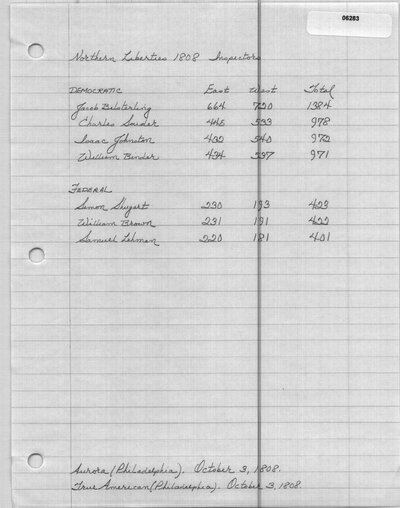 06283
Northern Liberties 1808 Inspectors
DEMOCRATIC East West Total
Jacob Belsterling 664 720 1384
Charles 445 533 978
Isaac Johnston 432 540 972
William Binder 434 537 971
FEDERAL
Simon Shugart 230 193 423
William Brown 231 191 422
Samuel Lehman 220 181 401
Aurora (Philadelphia). October 3, 1808.
True American (Philadelphia). October 3, 1808.